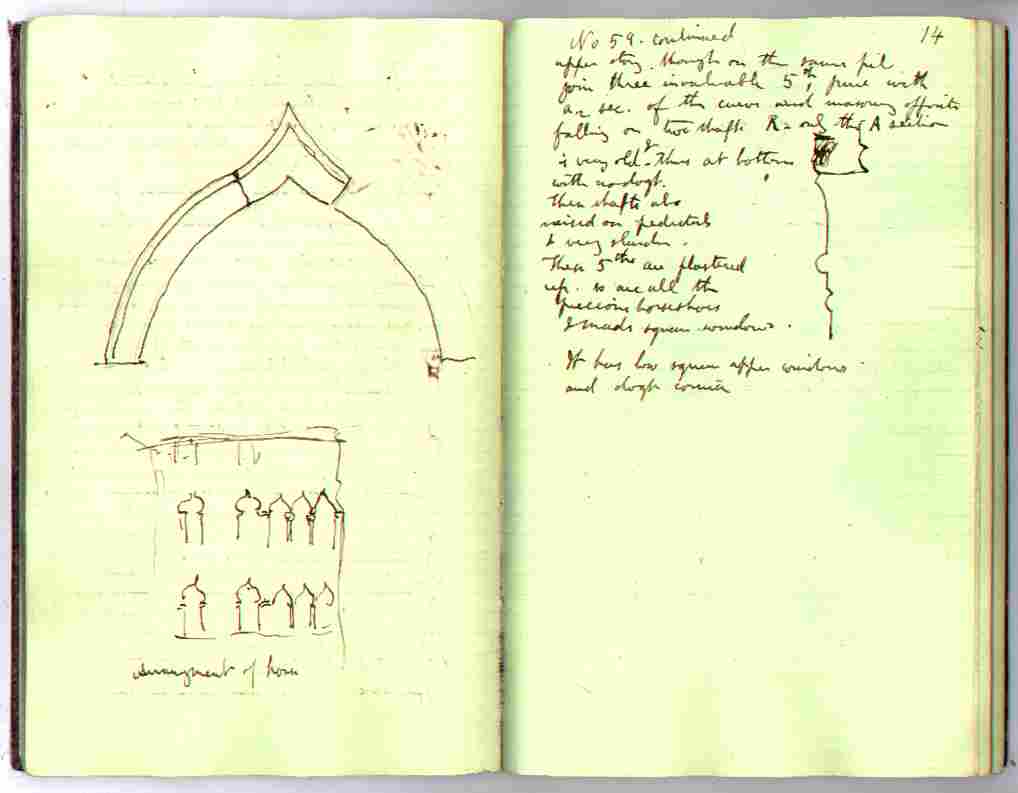 arrangment of house
14
No 59. continued
upper story. though on the same pil
join three invaluable 5th, pure with
a sec. of the curves and masonry opposite
falling on two shafts R. only the A section
is very old & thus at bottom
with no dogt.
Their shafts also
raised on pedestals
& very slender.
These 5ths are plastered
up. so are all the
precious horseshoes
& made square windows.
It has low square upper windows
and dogt cornice